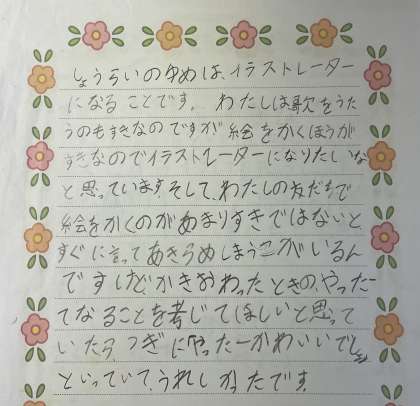 しょうらいのゆめは、イラストレーター
になることです。わたしは歌をうた
うのもすきなのですが絵をかくほうが
すきなのでイラストレーターになりたいな
と思っています。そして、わたしの友だちで
絵をかくのがあまりすきではないと、
すぐに言ってあきらめしまうこがいるん
ですけど、かきおわったときの、やったー
てなることを考じてほしいと思って
いたら、つぎにやったーかわいいでしょ
といっていて、うれしかったです。